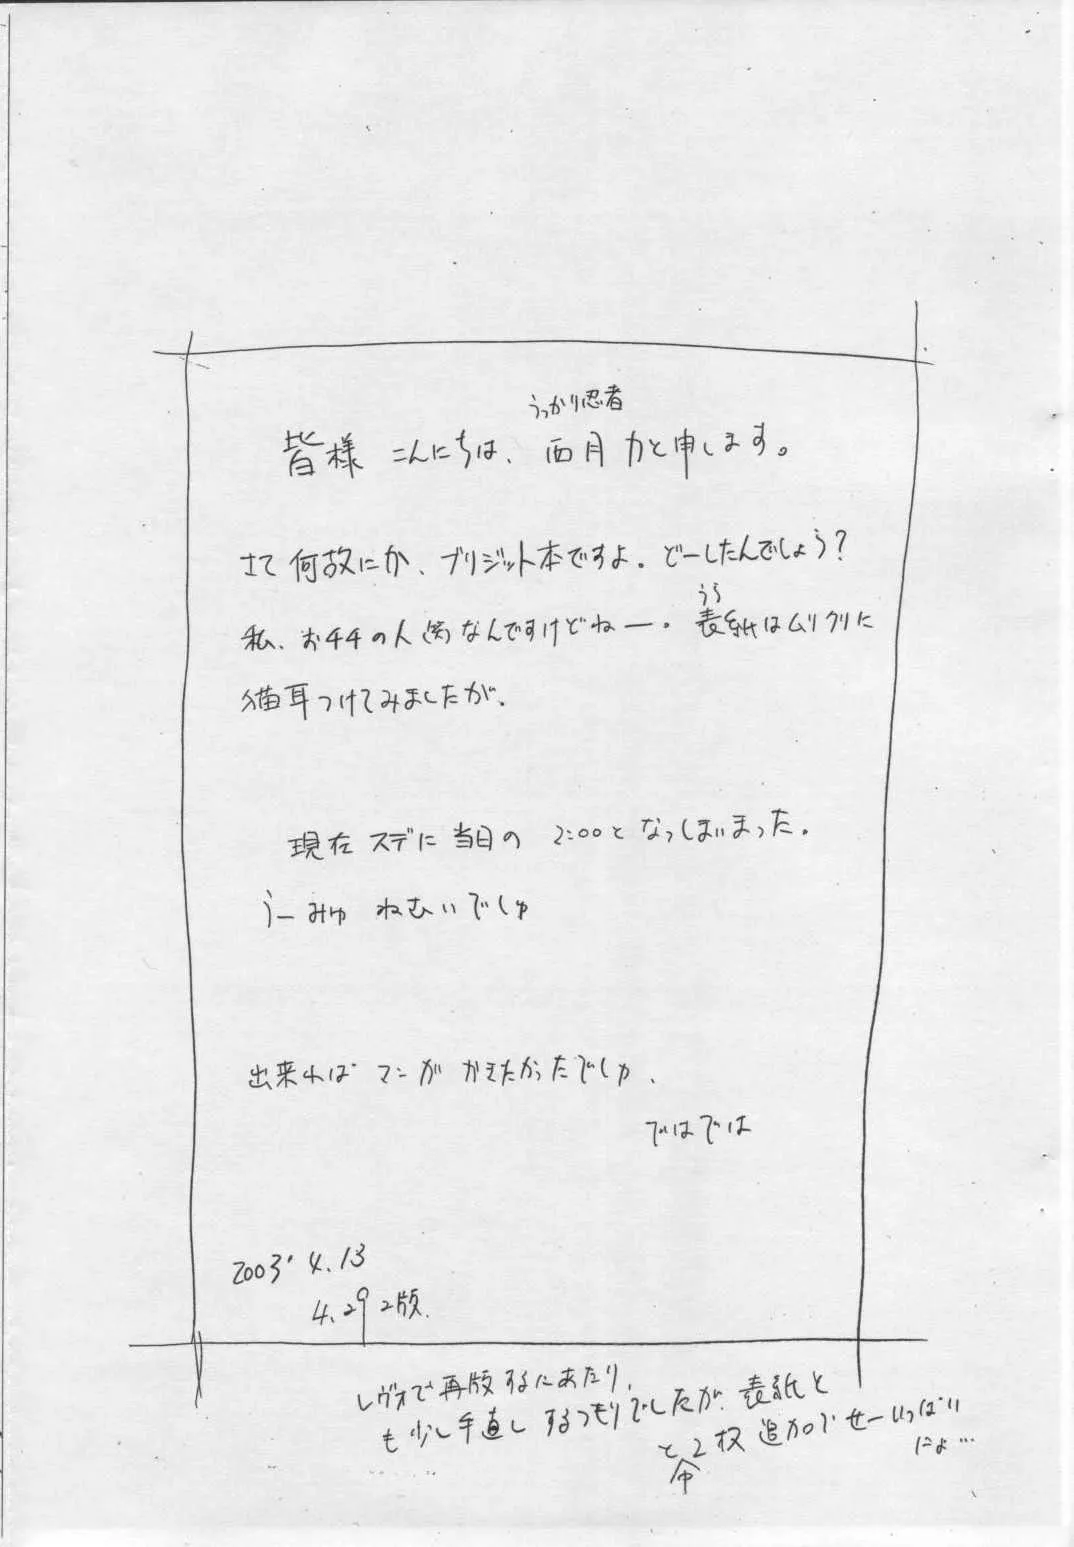 うっかり忍者
皆様 こんにちは、西月力と申します。
さて何故にか、ブリジット本ですよ。どーしたんでしょう?
うら
私、お千チの人(笑)なんですけどねー。表紙はムリクリに
猫耳つけてみましたが、
現在スデに当日の 2:00と なっしまいまった。
うーみゅ ねむいでしゅ
出来れば マンガ かきたかったでしゅ、
ではでは
2003' 4.13
4.29 2版.
レヴォで再版するにあたり、
も少し手直しするつもりでしたが、表紙と
と2枚 追加で せーいっぱい
中
にょ…